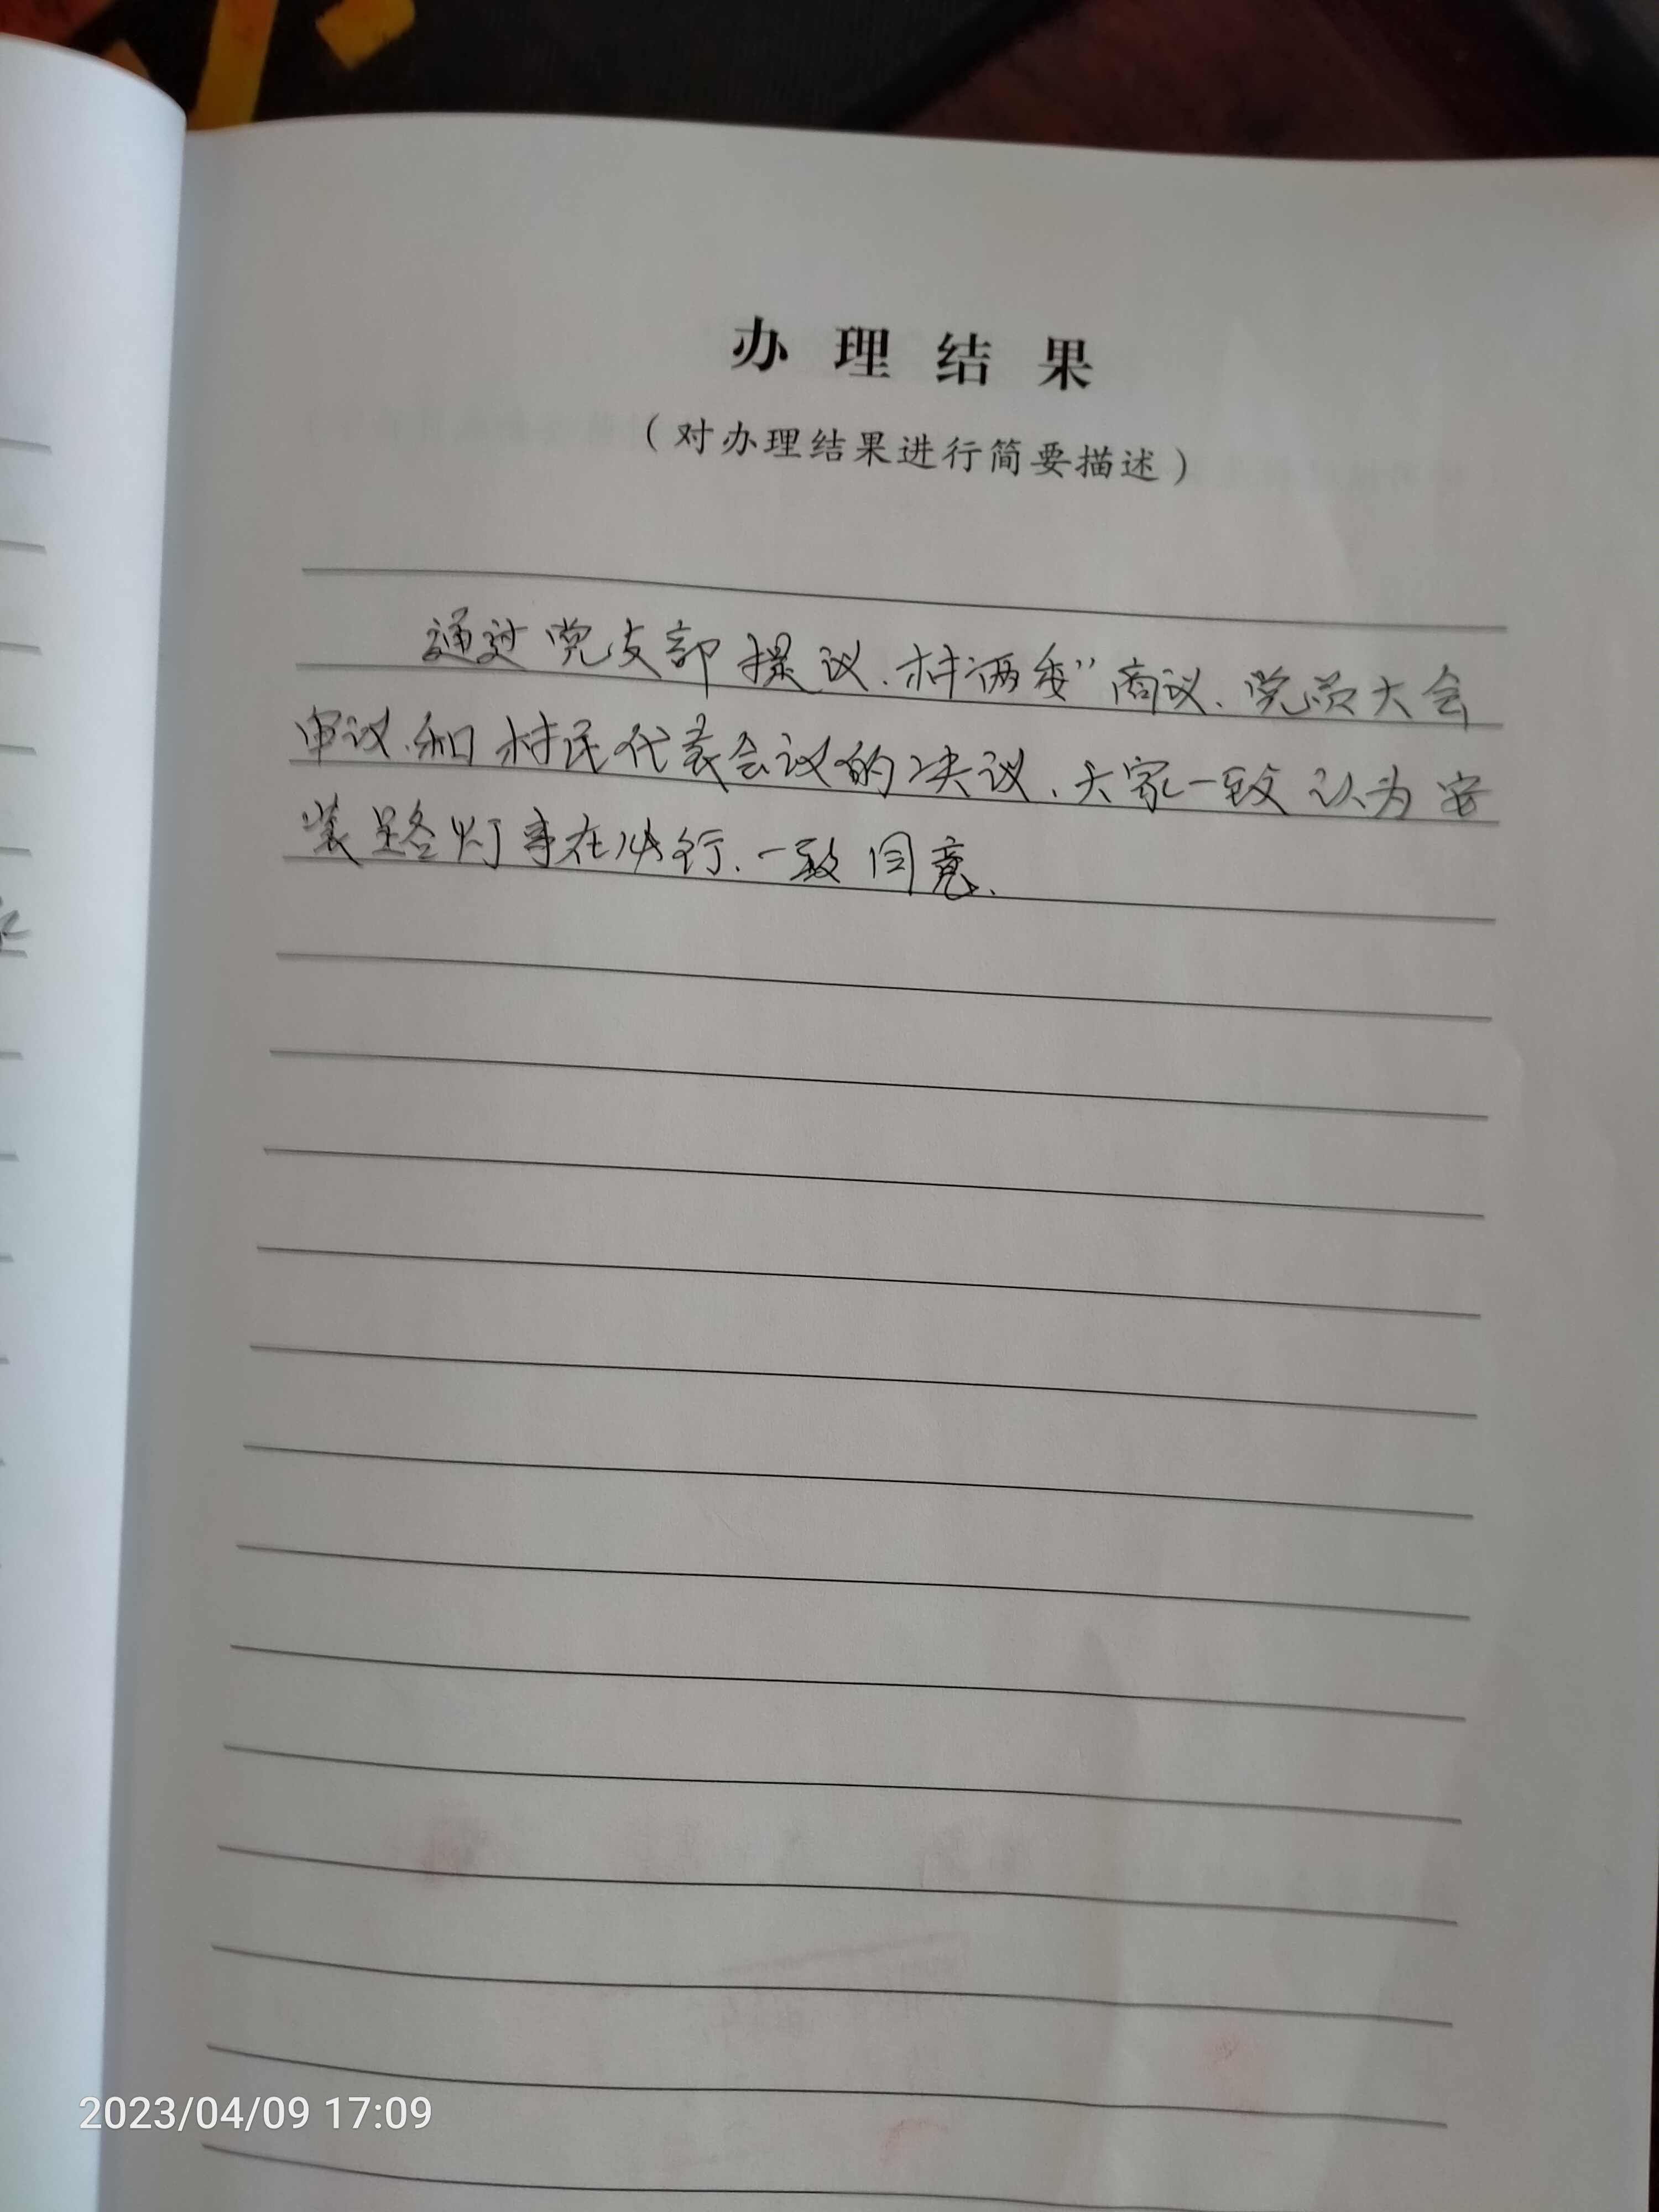 办理结果
(对办理结果进行简要描述)
通过党支部提议、村两委”商议、党员大会
审议、和村民代表会议的决议、大家一致认为安
装路灯事在必行、一致同意、
2023/04/09 17:09